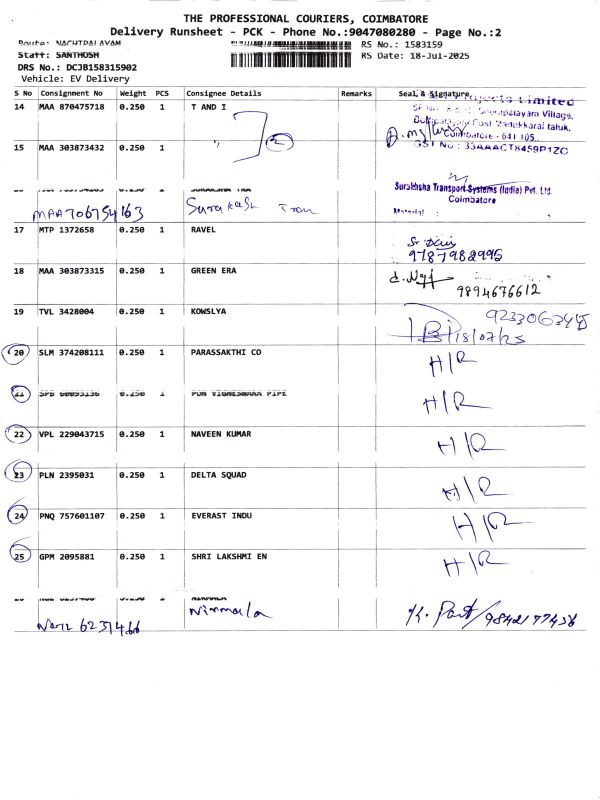 THE PROFESSIONAL COURIERS, COIMBATORE
Delivery Runsheet - PCK - Phone No.:9047080280 - Page No.:2
Route: NACHIPALAYAM RS No.: 1583159
Staff: SANTHOSH RS Date: 18-Jul-2025
DRS No.: DCJB158315902
Vehicle: EV Delivery
S No Consignment No Weight PCS Consignee Details Remarks Seal & Signature
14 MAA 870475718 0.250 1 T AND I
Limited
Village,
taluk,
Coimbatore - 641 105
GST No : 33AAACT8459P1ZC
2
15 MAA 303873432 0.250 1
Surakhsha Transport Systems (India) Pvt. Ltd.
Coimbatore
Material :
MAA 706754163 Surakash Tran
17 MTP 1372658 0.250 1 RAVEL
9787982995
18 MAA 303873315 0.250 1 GREEN ERA
9894676612
19 TVL 3428004 0.250 1 KOWSLYA
18/07/25
20 SLM 374208111 0.250 1 PARASSAKTHI CO H/R
21 0.250 1 PON VIGNESWARA PIPE H/R
22 VPL 229043715 0.250 1 NAVEEN KUMAR H/R
23 PLN 2395031 0.250 1 DELTA SQUAD H/R
24 PNQ 757601107 0.250 1 EVERAST INDU H/R
25 GPM 2095881 0.250 1 SHRI LAKSHMI EN H/R
Nirmala 9842177456